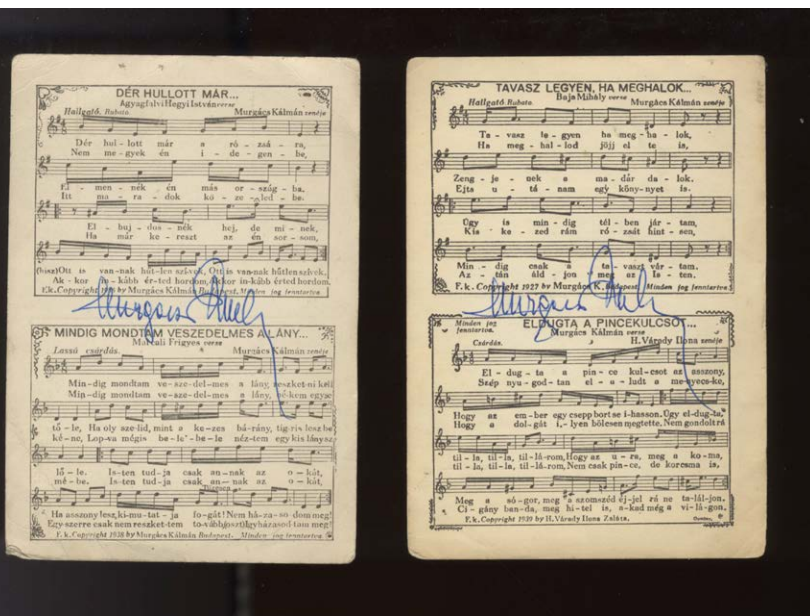 DÉR HULLOTT MÁR...
Ágyagfalvi Hegyi István verse
Hallgató. Rubato. Murgács Kálmán zenéje
Dér hul - lott már a ró - zsá - ra,
Nem me - gyek én i - de - gen - be,
El - men - nék én más or - szág - ba.
Itt ma - ra - dok kö - ze - led - be.
El - buj - dos - nék hej, de mi - nek,
Ha már ke - reszt az én sor - som,
(bisz) Ott is van - nak hűt - len szívek, Ott is van-nak hűtlen szívek.
Ak - kor in - kább ér - ted hordom, Akkor in-kább érted hordom.
F.k. Copyright by Murgács Kálmán Budapest. Minden jog fenntartva
MINDIG MONDTAM VESZEDELMES A LÁNY...
Marcali Frigyes verse
Lassú csárdás. Murgács Kálmán zenéje
Min-dig mondtam ve - sze - del - mes a lány, reszket-ni kell
Min-dig mondtam ve - sze - del - mes a lány,
tő - le, Ha oly sze-lid, mint a ke - zes bá - rány, tig-ris lesz be-
ké - ne, Lop-va mégis be - le - be - le néz-tem egy kis lány sze-
lő - le. Is-ten tud-ja csak an - nak az o - kát,
mé - be. Is-ten tud-ja csak an - nak az o - kát,
Ha asszony lesz, ki - mu - tat - ja fo - gát! Nem há - za - so - dom meg!
Egy-szerre csak nem reszket-tem to - vább
F.k. Copyright 1938 by Murgács Kálmán Budapest. Minden jog fenntartva
TAVASZ LEGYEN, HA MEGHALOK...
Baja Mihály verse
Hallgató. Rubato. Murgács Kálmán zenéje
Ta - vasz le - gyen ha meg - ha - lok,
Ha meg - hal - lod jöjj el te is,
Zeng - je - nek a ma - dár da - lok.
Ejts u - tá - nam egy köny - nyet is.
Úgy is min - dig tél - ben jár - tam,
Kis ke - zed rám ró - zsát hint - sen,
Min - dig csak a ta - vaszt vár - tam.
Az - tán áld - jon meg az Is - ten.
F.k. Copyright 1927 by Murgács K. Budapest. Minden jog fenntartva
Minden jog
fenntartva.
ELDUGTA A PINCEKULCSOT...
Murgács Kálmán verse
Csárdás. H. Várady Ilona zenéje
El - dug - ta a pin - ce kul-csot az asszony,
Szép nyu - god - tan el - a - ludt a me-nyecs-ke,
Hogy az em - ber egy csepp bort se i-hasson. Úgy el-dug-ta,
Hogy a dol - gát i - lyen bölcsen megtette, Nem gondolt rá
til - la, til - la, til - lá - rom, Hogy az u - ra, meg a ko - ma,
til - la, til - la, til - lá - rom, Nem csak pin - ce, de korcsma is,
Meg a só - gor, meg a szomszéd éj - jel rá ne ta - lál - jon.
Ci - gány ban - da, meg hi - tel is, a - kad még a vi - lá - gon.
F.k. Copyright by H. Várady Ilona Zaláta.